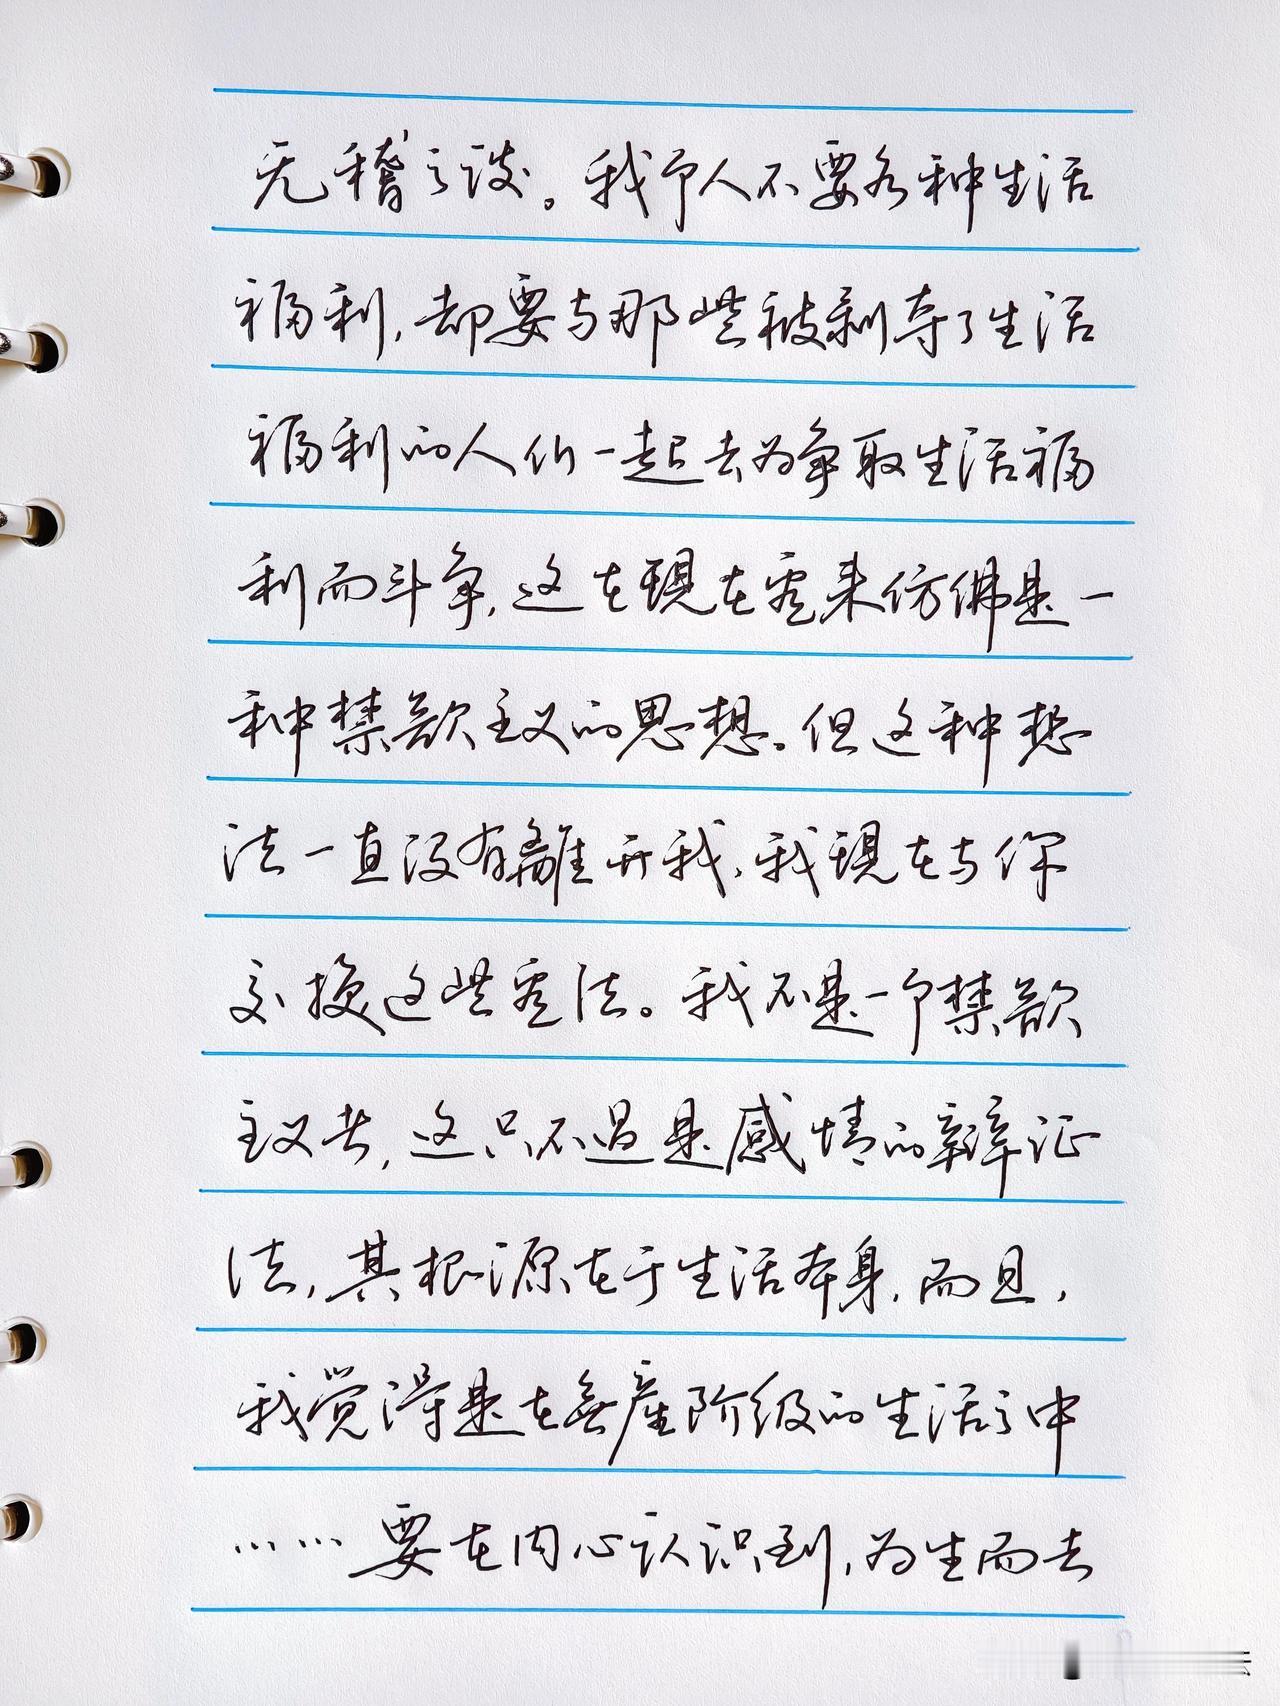 无稽之谈。我个人不要各种生活
福利，却要与那些被剥夺了生活
福利的人们一起去为争取生活福
利而斗争，这在現在看来仿佛是一
种禁欲主义的思想。但这种想
法一直没有離开我，我現在与你
交换这些看法。我不是一个禁欲
主义者，这只不过是感情的辩证
法，其根源在于生活本身，而且，
我觉得是在無產阶级的生活之中
……要在内心认识到，为生而去